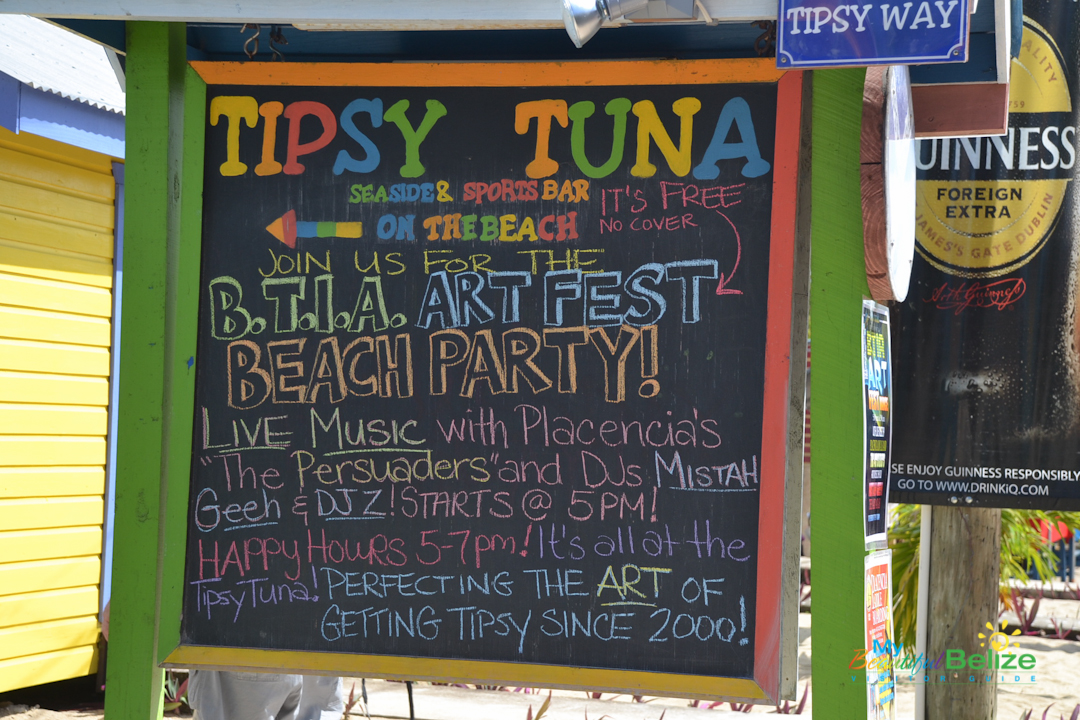 TIPSY WAY
TIPSY TUNA
SEASIDE & SPORTS BAR
ON THE BEACH
IT'S FREE
NO COVER
JOIN US FOR THE
B.T.I.A. ART FEST
BEACH PARTY!
LIVE MUSIC with Placencia's
"The Persuaders" and DJs MISTAH
Geeh & DJ Z! STARTS @ 5PM!
HAPPY HOURS 5-7pm! It's all at the
Tipsy Tuna! PERFECTING THE ART OF
GETTING TIPSY SINCE 2000!
ALITY
1759
UINNESS
FOREIGN
EXTRA
JAMES'S GATE DUBLIN
SE ENJOY GUINNESS RESPONSIBLY
GO TO WWW.DRINKIQ.COM
BTIA
ART
My
Beautiful Belize
VISITOR GUIDE